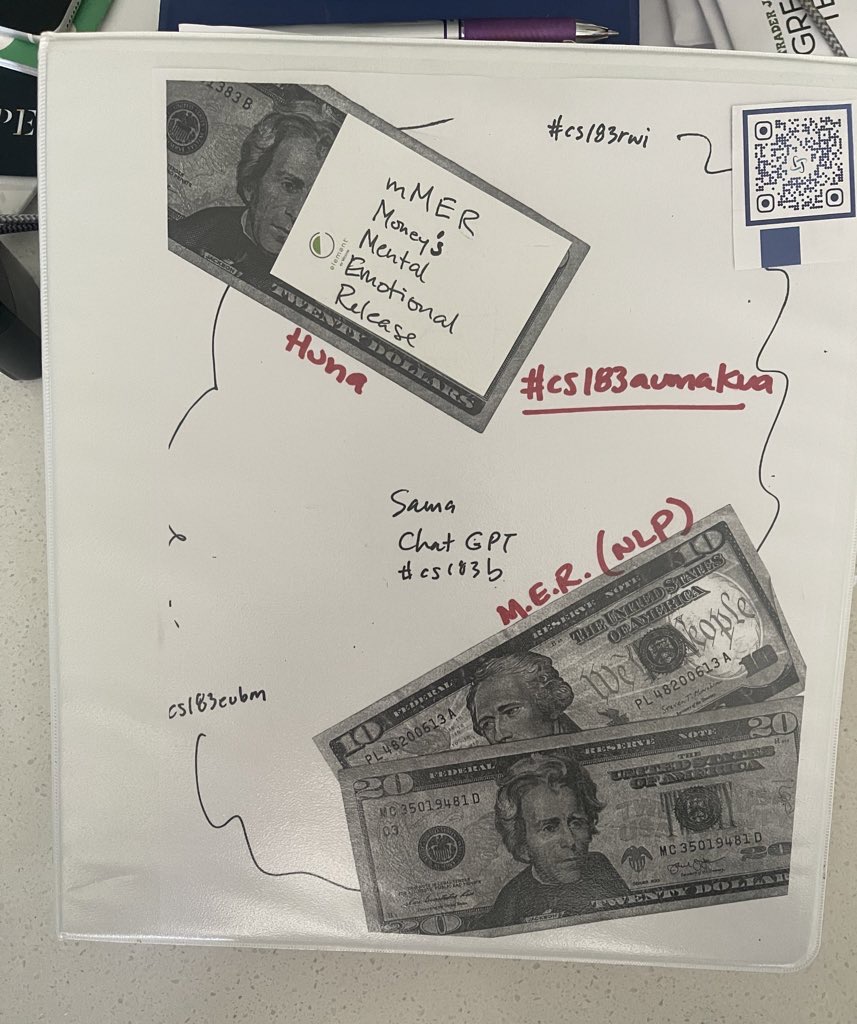 TRADER J
GRE
TE
PE
1383 B
#cs183rwi
mMER
Money's
Mental
Emotional
Release
element
JACKSON
TWENTY DOLLARS
Huna
#cs183aumakua
Sama
Chat GPT
#cs183b
M.E.R. (NLP)
cs183cubm
10
FEDERAL RESERVE NOTE
THE UNITED STATES
OF AMERICA
10
We People
PL 48200613 A
10
PL 48200613 A
20
FEDERAL RESERVE NOTE
20
THE
UNITED STATES
OF AMERICA
MC 35019481 D
C3
MC 35019481 D
20
JACKSON
TWENTY DOLLAR
20